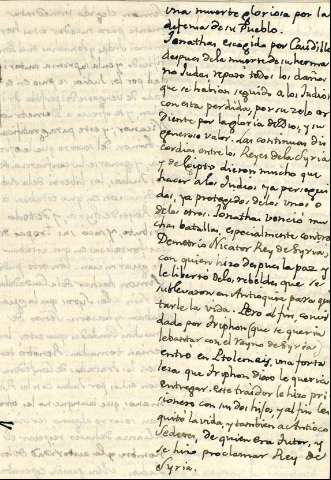 una muerte gloriosa por la
defensa de su Pueblo.
Jonathas escogido por Caudillo
despues de la muerte de su herma
no Judas reparo todos los daños
que se habian seguido a los Judios
con esta perdida, por su zelo ar
diente por la gloria de Dios, y su
generoso valor. Las continuas dis
cordias entre los Reyes de la Syria,
y de Egipto dieron mucho que
hacer a los Judios, ya persegui
dos, ya protegidos de los unos, o
de los otros. Jonathas venciò mu
chas batallas, especialmente contra
Demetrio Nicátor Rey de Syria,
con quien hizo despues la paz y
le libertò de los rebeldes que se
sublevaron en Antioquia para qui
tarle la vida. Pero al fin, convi
dado por Triphon (que se queria
lebantar con el Reyno de Syria)
entrò en Ptolemais, una forta
leza que Triphon dixo le queria
entregar. Este traidor le hizo pri
sionero con sus dos hijos, y al fin les
quitò la vida, y tambien a Antioco
de quien era tutor, y
se hizo proclamar Rey de
Syria.